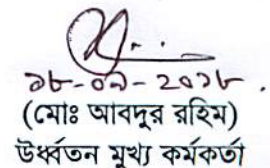 ১৮-০৯-২০১৮
(মোঃ আবদুর রহিম)
উর্ধ্বতন মুখ্য কর্মকর্তা